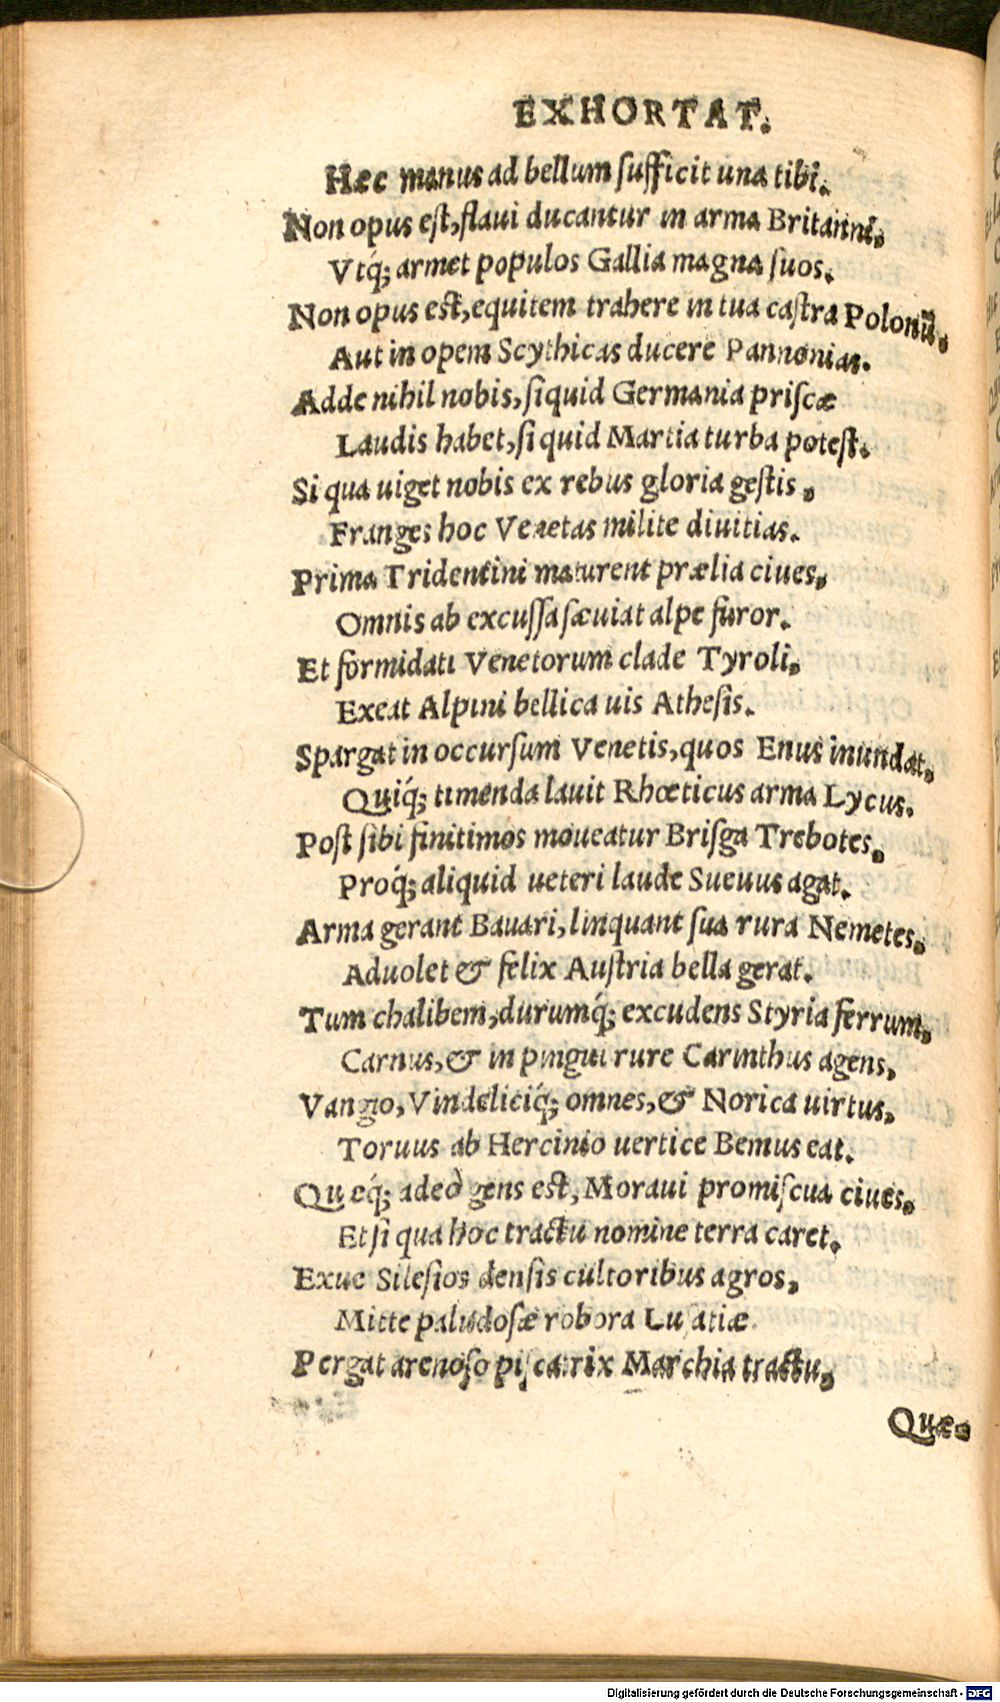 EXHORTAT.
Hæc manus ad bellum ſufficit una tibi.
Non opus eſt, flaui ducantur in arma Britanni,
Vtq́; armet populos Gallia magna ſuos.
Non opus eſt, equitem trahere in tua caſtra Polonũ,
Aut in opem Scythicas ducere Pannonias.
Adde nihil nobis, ſiquid Germania priſcæ
Laudis habet, ſi quid Martia turba poteſt.
Si qua uiget nobis ex rebus gloria geſtis,
Franges hoc Venetas milite diuitias.
Prima Tridentini maturent prælia ciues,
Omnis ab excuſſa ſæuiat alpe furor.
Et formidati Venetorum clade Tyroli,
Exeat Alpini bellica uis Atheſis.
Spargat in occurſum Venetis, quos Enus inundat,
Quiq́; timenda lauit Rhœticus arma Lycus.
Poſt ſibi finitimos moueatur Briſga Trebotes,
Proq́; aliquid ueteri laude Sueuus agat.
Arma gerant Bauari, linquant ſua rura Nemetes,
Aduolet & felix Auſtria bella gerat.
Tum chalibem, durumq́; excudens Styria ferrum,
Carnus, & in pingui rure Carinthus agens,
Vangio, Vindeliciq́; omnes, & Norica uirtus,
Toruus ab Hercinio uertice Bemus eat.
Quæq́; adeò gens eſt, Moraui promiſcua ciues,
Et ſi qua hoc tractu nomine terra caret.
Exue Sileſios denſis cultoribus agros,
Mitte paludoſæ robora Luſatiæ.
Pergat arenoſo piſcatrix Marchia tractu,
Quæ
Digitalisierung gefördert durch die Deutsche Forschungsgemeinschaft - DFG